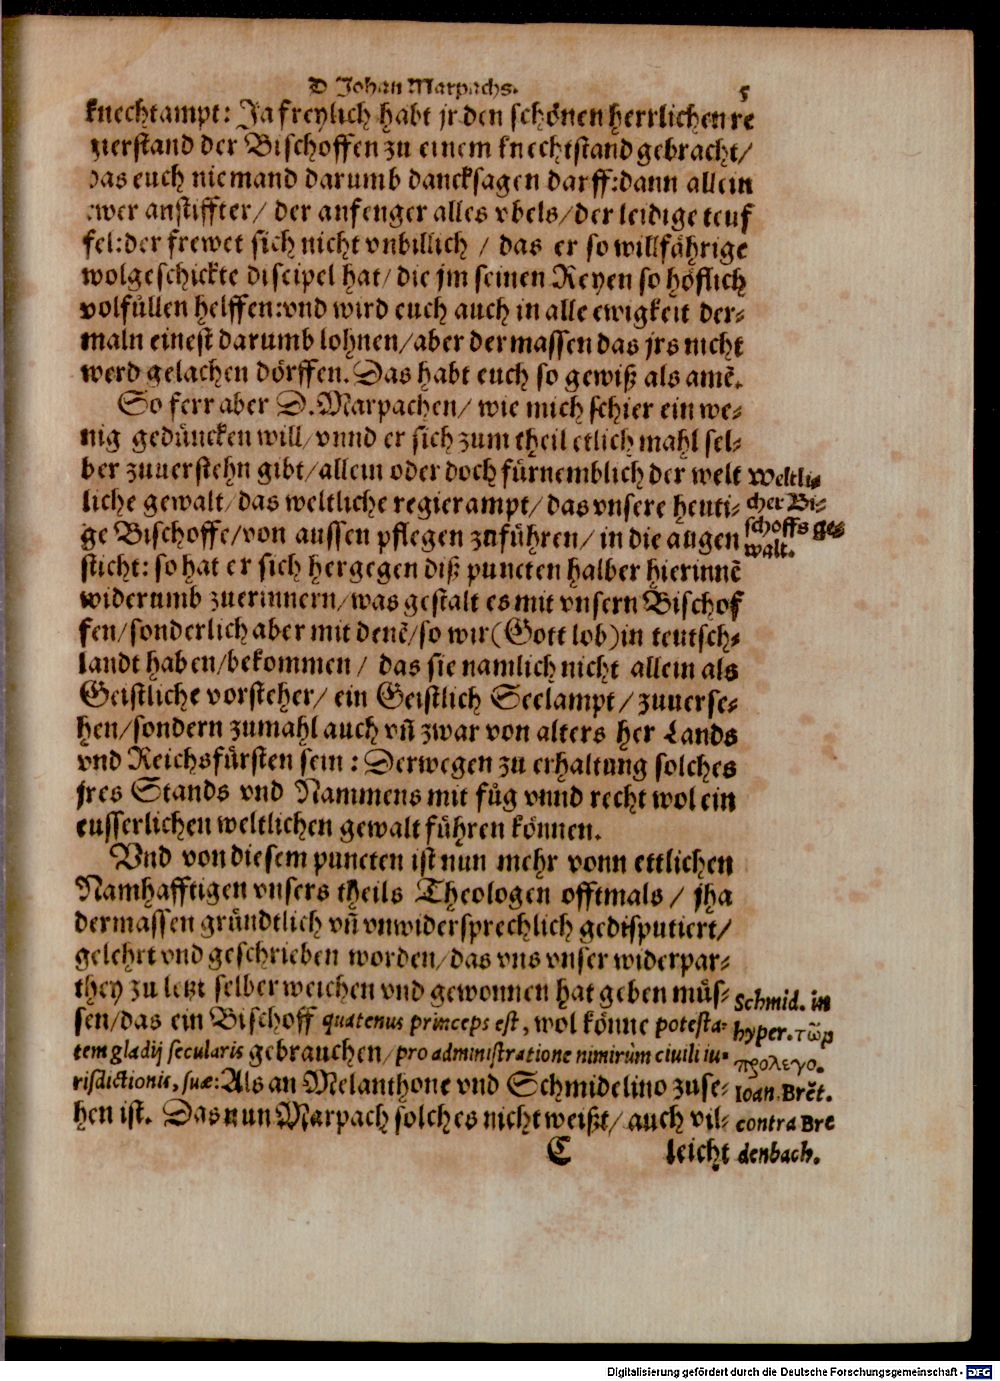 D Johan Marpachs. 5
knechtampt: Ja freylich habt jr den schönen herrlichen re
gierstand der Bischoffen zu einem knechtstand gebracht/
das euch niemand darumb dancksagen darff: dann allein
ewer anstiffter/ der anfenger alles vbels/ der leidige teuf
fel: der frewet sich nicht vnbillich / das er so willfährige
wolgeschickte discipel hat/ die jm seinen Reyen so höflich
volfüllen helffen: vnd wird euch auch in alle ewigkeit der-
maln einest darumb lohnen/ aber dermassen das jrs nicht
werd gelachen dörffen. Das habt euch so gewiß als amē.
So ferr aber D. Marpachen/ wie mich schier ein we-
nig gedüncken will/ vnnd er sich zum theil etlich mahl sel-
ber zuuerstehn gibt/ allein oder doch fürnemblich der welt
liche gewalt/ das weltliche regierampt/ das vnsere heuti-
ge Bischoffe/ von aussen pflegen zuführen/ in die augen
sticht: so hat er sich hergegen diß puncten halber hierinnē
widerumb zuerinnern/ was gestalt es mit vnsern Bischof
fen/ sonderlich aber mit denē/ so wir (Gott lob) in teutsch-
landt haben/ bekommen / das sie namlich nicht allein als
Geistliche vorsteher/ ein Geistlich Seelampt / zuuerse-
hen/ sondern zumahl auch vñ zwar von alters her Lands
vnd Reichsfürsten sein : Derwegen zu erhaltung solches
jres Stands vnd Nammens mit füg vnnd recht wol ein
eusserlichen weltlichen gewalt führen können.
Vnd von diesem puncten ist nun mehr vonn ettlichen
Namhafftigen vnsers theils Theologen offtmals / jha
dermassen gründtlich vñ vnwidersprechlich gedisputiert/
gelehrt vnd geschrieben worden/ das vns vnser widerpar-
they zu letzt selber weichen vnd gewonnen hat geben müs-
sen/ das ein Bischoff quatenus princeps est, wol könne potesta-
tem gladij secularis gebrauchen/ pro administratione nimirùm ciuili iu-
risdictionis, suæ: Als an Melanthone vnd Schmidelino zuse-
hen ist. Das nun Marpach solches nicht weißt/ auch vil-
C leicht
Weltli-
cher Bi-
schoffs ge-
walt.
Schmid. in
hyper. τῶν
προλεγο.
Ioan. Brēt.
contra Bre
denbach.
Digitalisierung gefördert durch die Deutsche Forschungsgemeinschaft - DFG